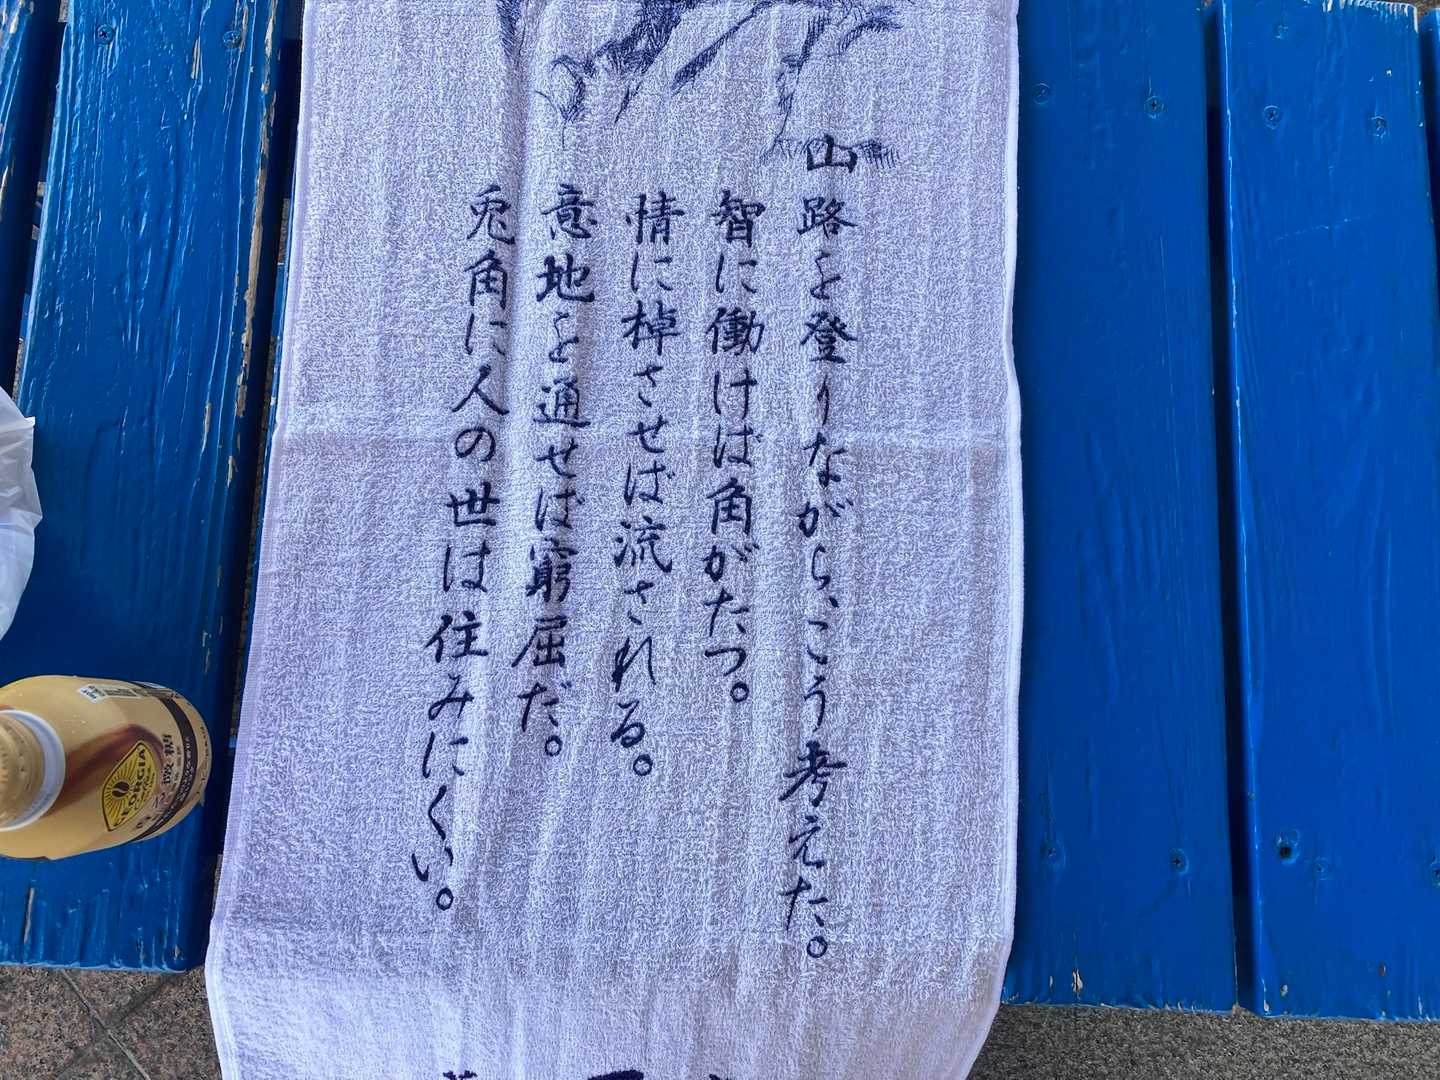 山路を登りながら、こう考えた。
智に働けば角がたつ。
情に棹させば流される。
意地を通せば窮屈だ。
兎角に人の世は住みにくい。
GEORGIA